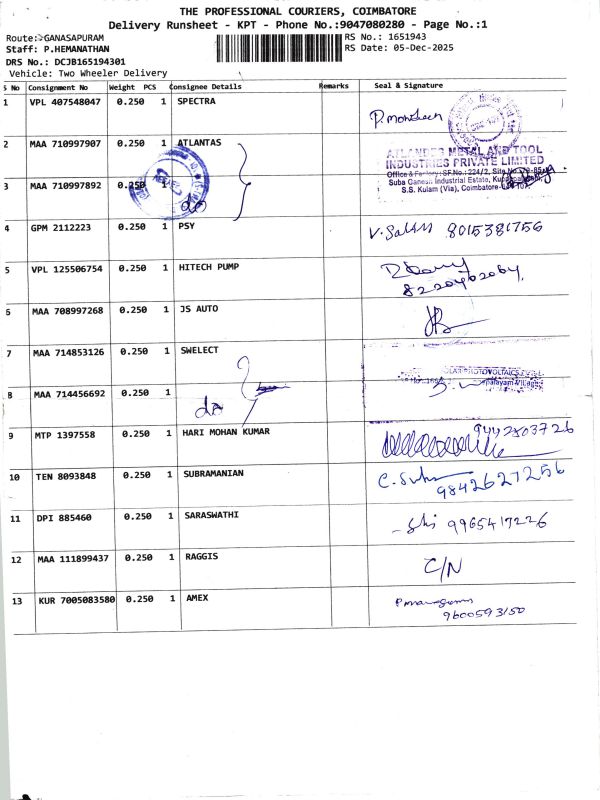 THE PROFESSIONAL COURIERS, COIMBATORE
Delivery Runsheet - KPT - Phone No.:9047080280 - Page No.:1
Route:>GANASAPURAM RS No.: 1651943
Staff: P.HEMANATHAN RS Date: 05-Dec-2025
DRS No.: DCJB165194301
Vehicle: Two Wheeler Delivery
S No Consignment No Weight PCS Consignee Details Remarks Seal & Signature
1 VPL 407548047 0.250 1 SPECTRA
2 MAA 710997907 0.250 1 ATLANTAS
METAL AND TOOL
INDUSTRIES PRIVATE LIMITED
Office & Factory: SF.No.: 224/2, Site No.
3 MAA 710997892 0.250 1
Suba Ganesh Industrial Estate,
S.S. Kulam (Via), Coimbatore
do
4 GPM 2112223 0.250 1 PSY 8015381756
5 VPL 125506754 0.250 1 HITECH PUMP
8220462064
6 MAA 708997268 0.250 1 JS AUTO
7 MAA 714853126 0.250 1 SWELECT
8 MAA 714456692 0.250 1
do
9 MTP 1397558 0.250 1 HARI MOHAN KUMAR 9442803726
10 TEN 8093848 0.250 1 SUBRAMANIAN
9842627256
11 DPI 885460 0.250 1 SARASWATHI 9965417226
12 MAA 111899437 0.250 1 RAGGIS C/N
13 KUR 7005083580 0.250 1 AMEX
9600593150